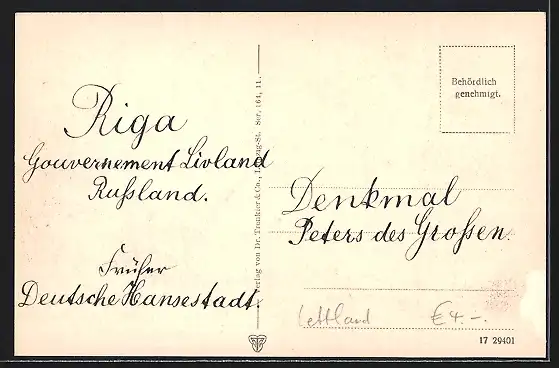 Riga
Gouvernement Livland
Rußland.
Früher
Deutsche Hansestadt.
Verlag von Dr. Trenkler & Co., Leipzig-St. Ser. 164, 11.
Behördlich
genehmigt.
Denkmal
Peters des Großen.
Lettland €4.-.
17 29401